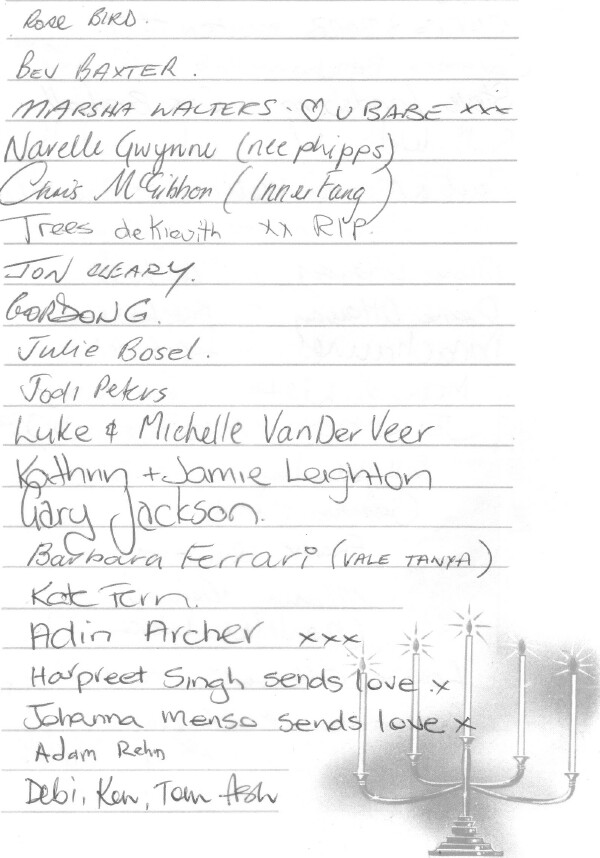 ROSE BIRD.
BEV BAXTER.
MARSHA WALTERS. ♡ U BABE xxx
Narelle Gwynne (nee phipps)
Chris McGibbon (Inner Fang)
Trees deKievith xx RIP.
JON CLEARY.
GORDON G.
Julie Bosel.
Jodi Peters
Luke & Michelle VanDerVeer
Kathryn + Jamie Leighton
Gary Jackson.
Barbara Ferrari (VALE TANYA)
Kate Fern.
Adin Archer xxx
Harpreet Singh sends love x
Johanna Menso sends love x
Adam Rehn
Debi, Ken, Tom Ash